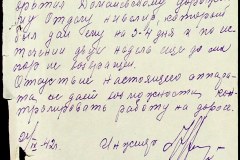 вратил Домановскому дорожно-
му Отделу нивелир, который
был дан ему на 3-4 дня и по ис-
течении двух недель еще до сих
пор не возвращен.
Отсутствие настоящего аппара-
та, не дает возможности кон-
тролировать работу на дороге.
IX-42 г.
Инженер